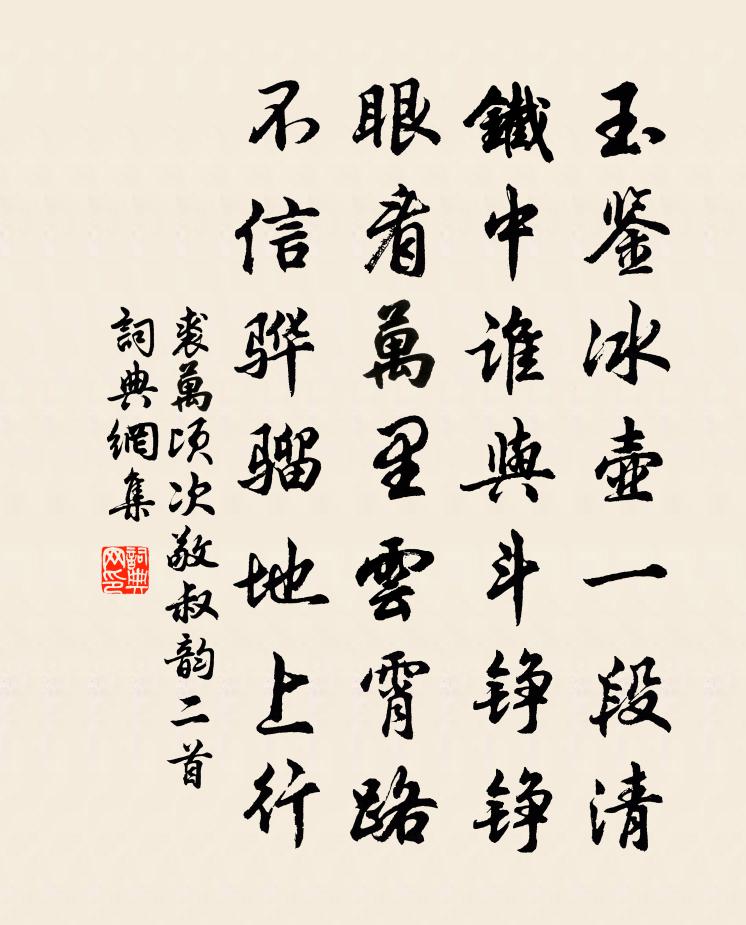 玉鉴冰壶一段清
鐵中谁與斗铮铮
眼看萬里雲霄路
不信骅骝地上行
裘萬顷次敬叔韵二首
詞典網集
詞典网印